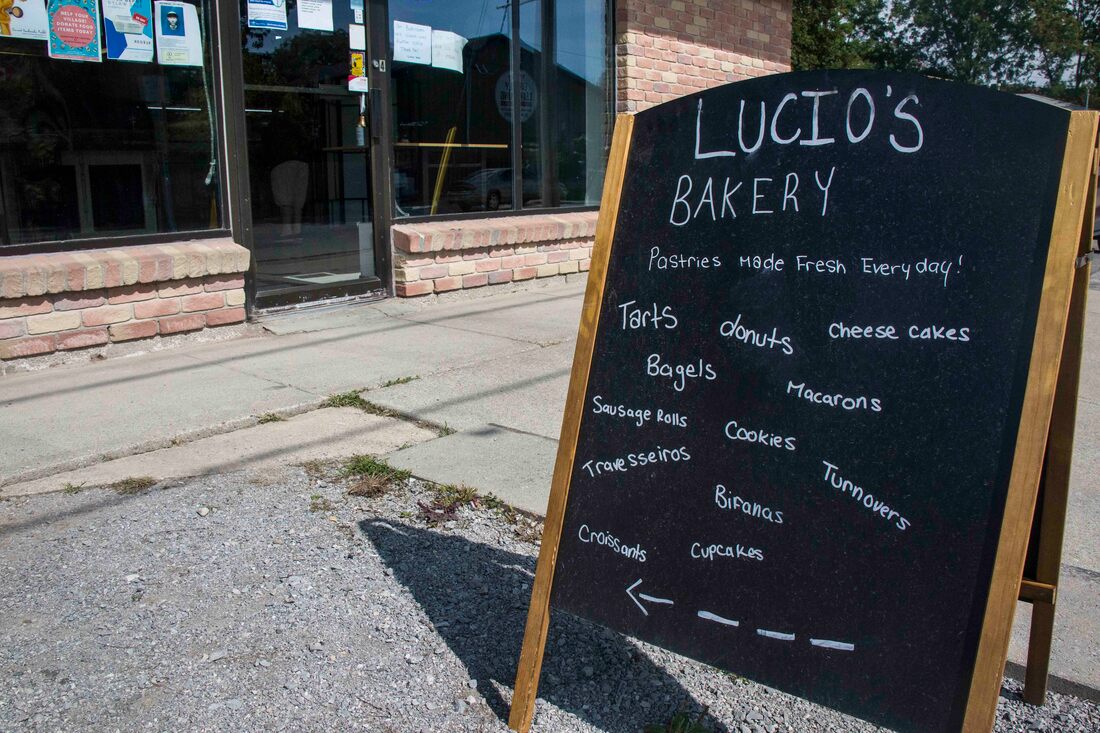 HELP YOUR
VILLAGE!
DONATE FOOD
ITEMS TODAY
LUCIO'S
BAKERY
Pastries Made Fresh Everyday!
Tarts donuts cheese cakes
Bagels Macarons
Sausage Rolls Cookies
Travesseiros Turnovers
Bifanas
Croissants Cupcakes